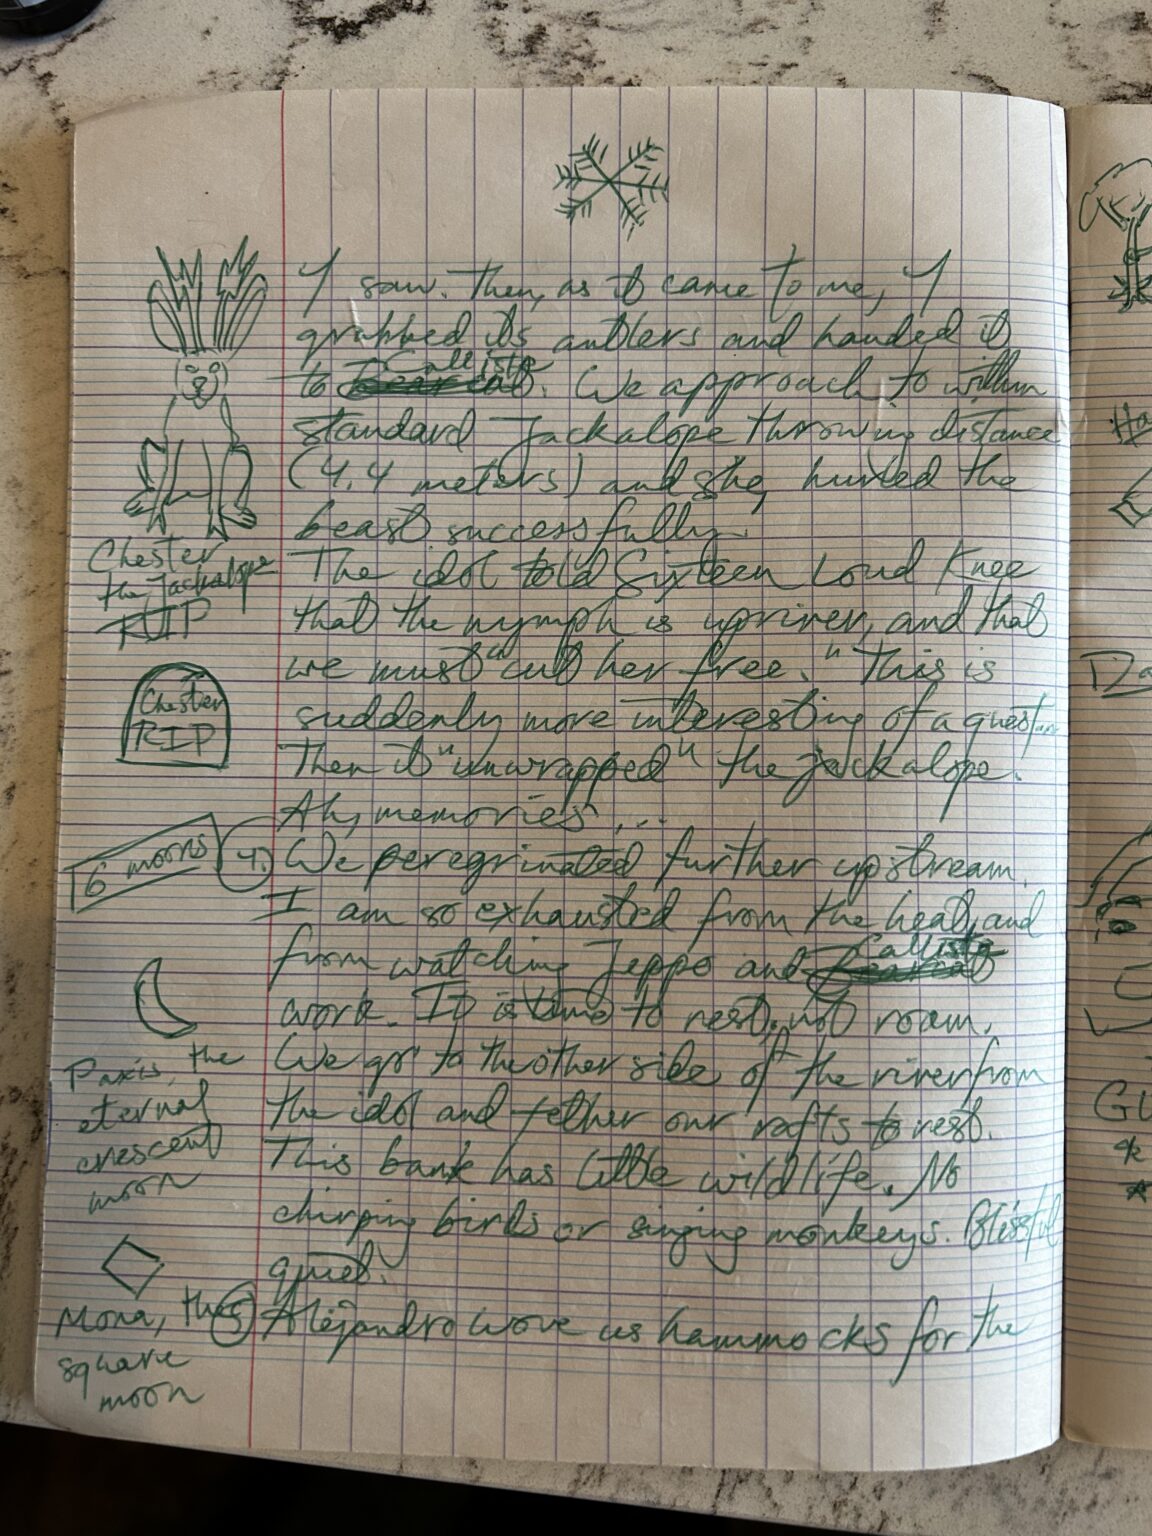 I saw. Then, as it came to me, I
grabbed its antlers and handed it
to Callista. We approach to within
standard Jackalope throwing distance
(4.4 meters) and she hurled the
beast successfully.
The idol told Sixteen Loud Knee
that the nymph is upriver, and that
we must "cut her free." This is
suddenly more interesting of a quest.
Then it "unwrapped" the jackalope.
Ah, memories...
4. We peregrinated further upstream.
I am so exhausted from the heat, and
from watching Jeppo and Callista
work. It is time to rest, not roam.
We go to the other side of the river from
the idol and tether our rafts to rest.
This bank has little wildlife. No
chirping birds or singing monkeys. Blissful
quiet.
5 Alejandro wove us hammocks for the
Chester
the Jackalope
RIP
Chester
RIP
6 moons
Paxis, the
eternal
crescent
moon
Mona, the
square
moon